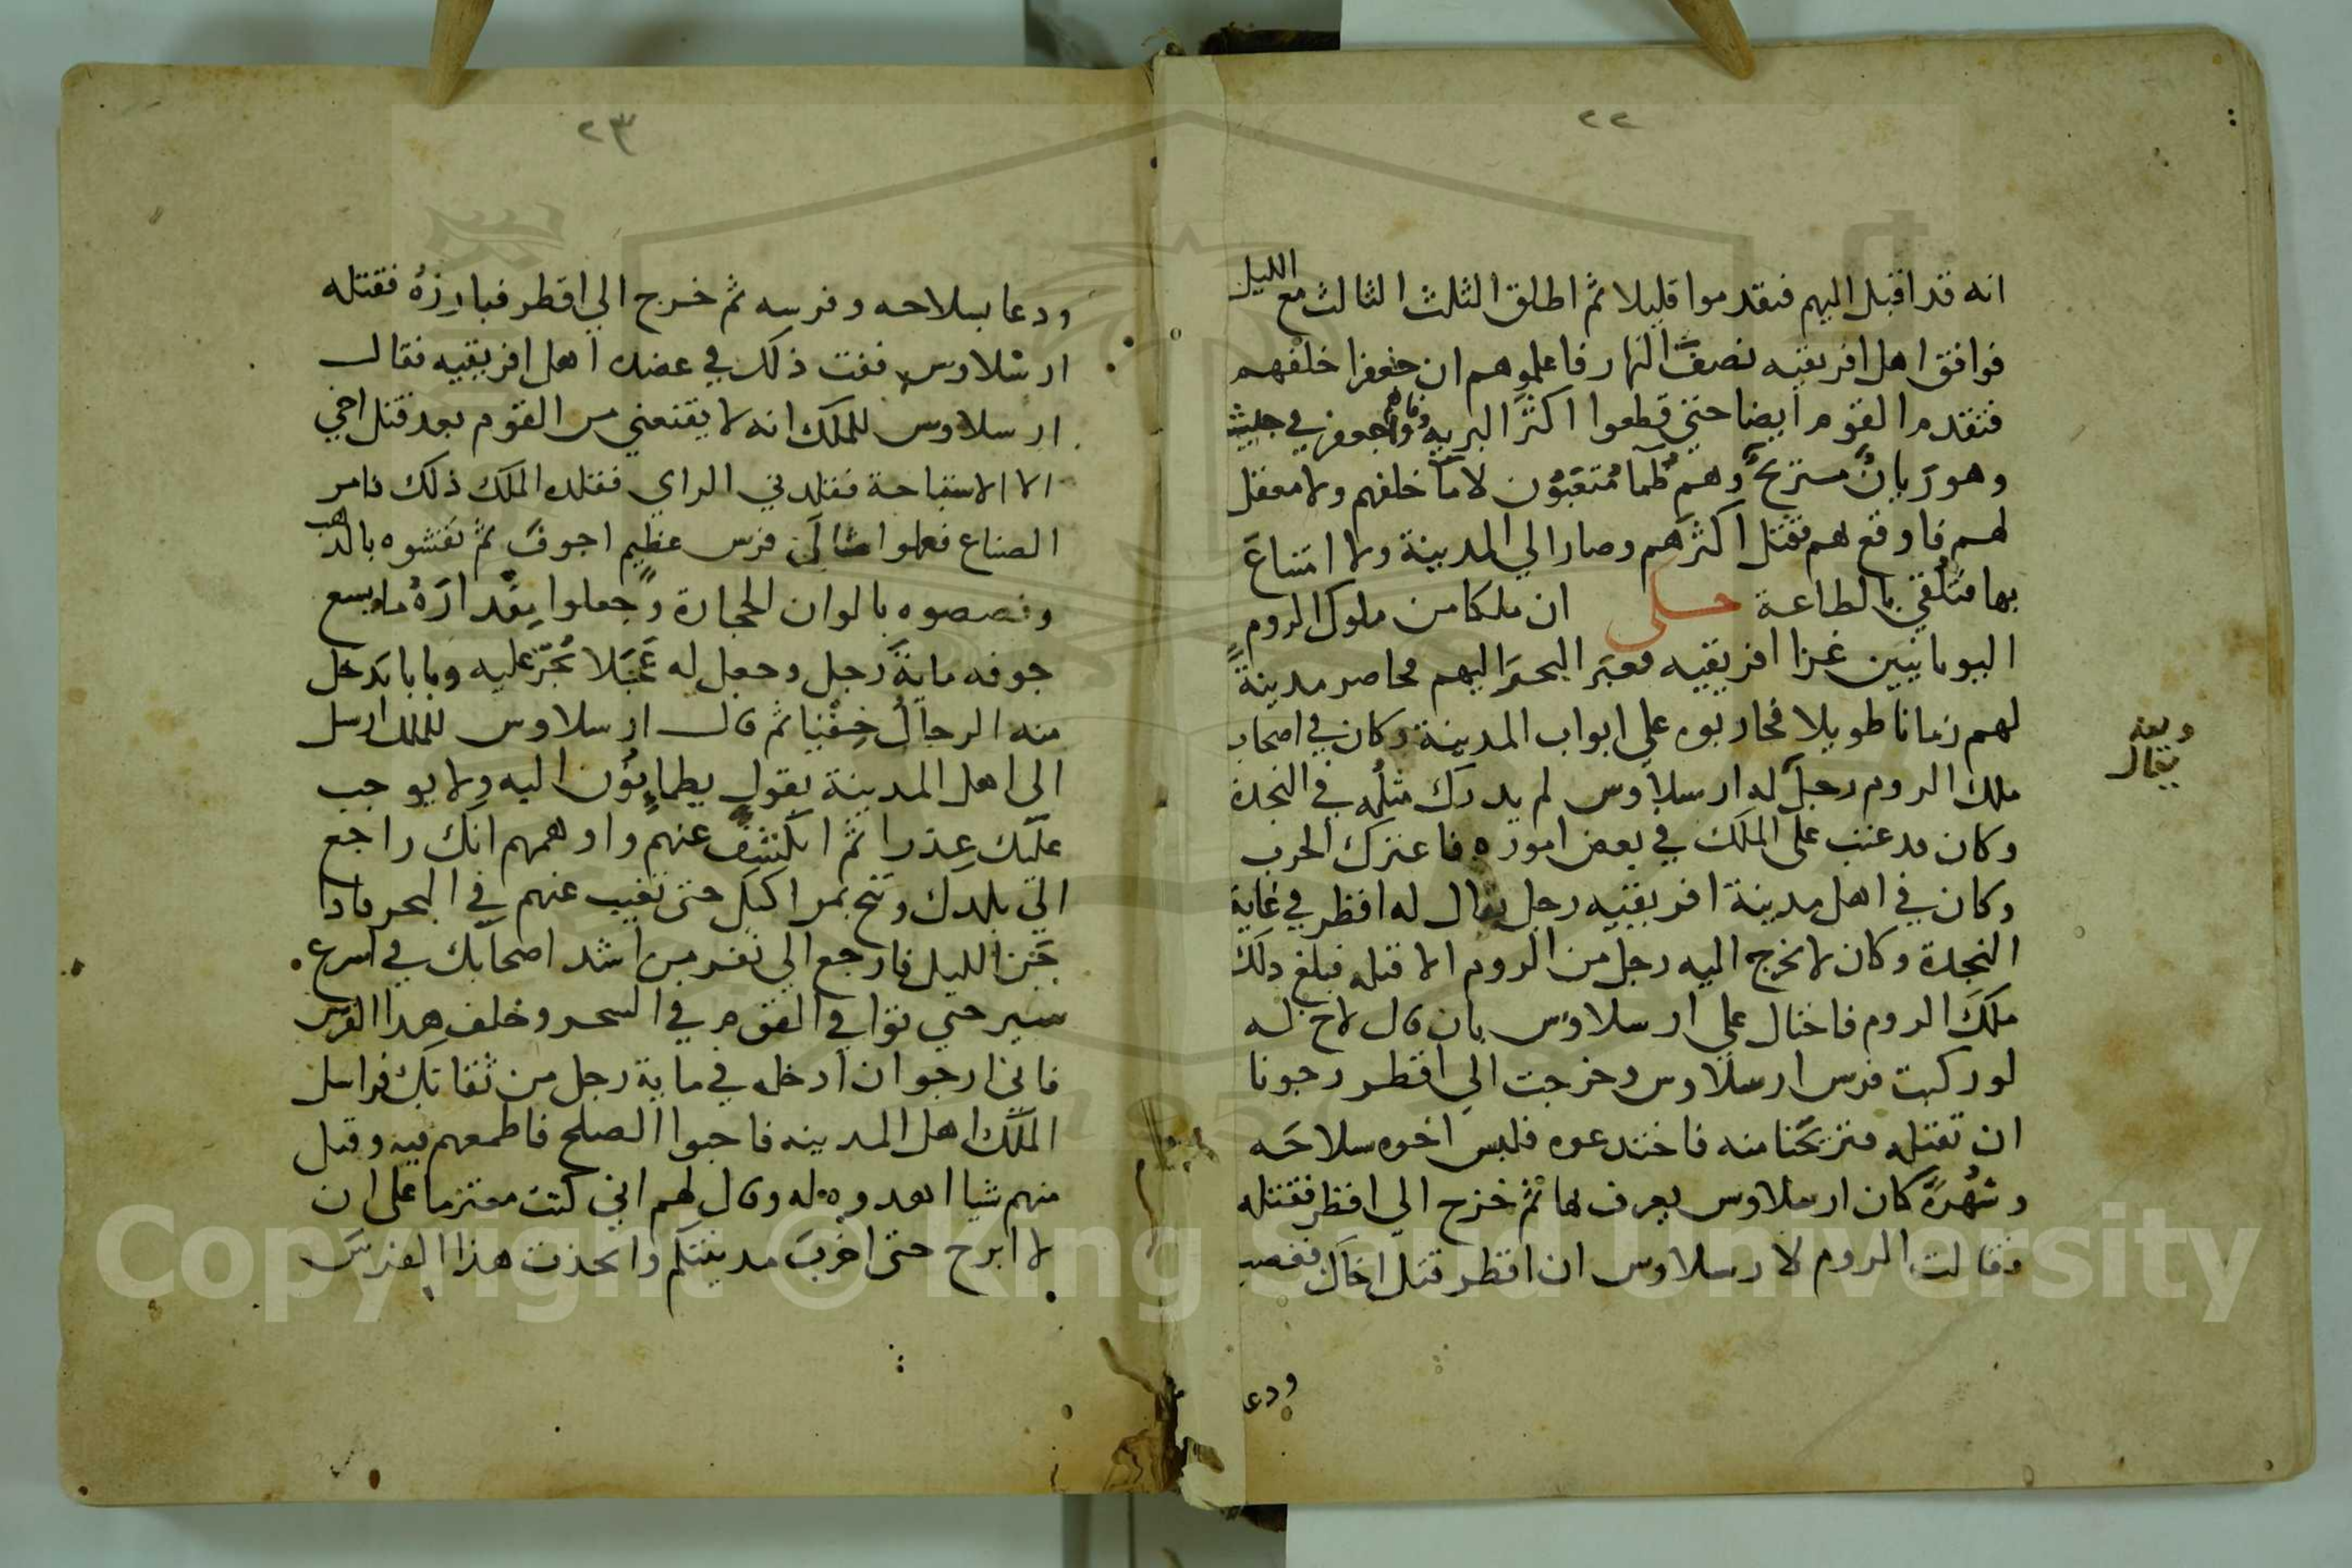 ٢٢
انه قد اقبل اليهم فتقدموا قليلا ثم اطلق الثلث الثالث مع الليل
فوافق اهل افريقيه نصف النهار فاعلموهم ان جعفرا خلفهم
فتقدم القوم ايضا حتى قطعوا اكثر البريه جعفر في جيش
وهو ريان مستريح وهم ظما متعبون لا ما خلفهم ولا معقل
لهم فاوقع بهم فقتل اكثرهم وصار الي المدينة ولا امتناع
بها فتلقي بالطاعة حكى ان ملكا من ملوك الروم
اليونانيين غزا افريقيه فعبر البحر اليهم فحاصر مدينة
لهم زمانا طويلا فحاربوه على ابواب المدينة وكان في اصحاب
ملك الروم رجل له ارسلاوس لم يدرك مثله في النجدة
يقال
وكان قد عتب على الملك في بعض اموره فاعتزل الحرب
وكان في اهل مدينة افريقيه رجل يقال له اقطر في غاية
النجدة وكان لا يخرج اليه رجل من الروم الا قتله فبلغ ذلك
ملك الروم فاحتال على ارسلاوس بان قال لاخ له
لو ركبت فرس ارسلاوس وخرجت الي اقطر رجونا
ان تقتله فتريحنا منه فاختدعوه فلبس اخوه سلاحه
وشهرة كان ارسلاوس يعرف بها ثم خرج الى اقطر فقتله
وقالت الروم لارسلاوس ان اقطر قتل اخاك فغضب
ودعا
٢٣
ودعا بسلاحه وفرسه ثم خرج الي اقطر فبارزه فقتله
ارسلاوس ففت ذلك في عضد اهل افريقيه فقال
ارسلاوس للملك انه لا يقنعني من القوم بعد قتل اخي
الا الاستباحة فقلدني الراي فقلده الملك ذلك فامر
الصناع فعملوا مثال فرس عظيم اجوف ثم نقشوه بالذهب
وفصصوه بالوان الحجارة وجعلوا مقداره ما يسع
جوفه ماية رجل وجعل له عجلا تجر عليه وبابا يدخل
منه الرجال خفيا ثم قال ارسلاوس للملك ارسل
الى اهل المدينة بقول يطمانون اليه ولا يوجب
عليك عذرا ثم انكشف عنهم واوهمهم انك راجع
الي بلدك وتنح بمراكبك حتى تغيب عنهم في البحر فاذا
جن الليل فارجع الي نفر من اشد اصحابك في اسرع
سير حتي توافي القوم في السحر وخلف هذا الفرس
فاني ارجو ان ادخله في ماية رجل من ثقاتك فراسل
الملك اهل المدينه فاحبوا الصلح فاطمعهم فيه وقبل
منهم شيا اهدوه له وقال لهم اني كنت معتزما على ان
لا ابرح حتى اخرب مدينتكم واتخذت هذا الفرس
Copyright © King Saud University